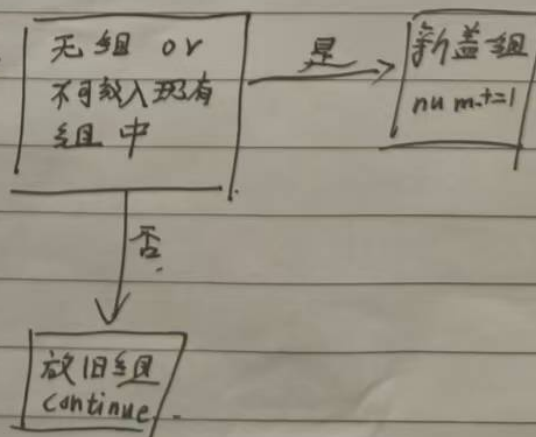 无组 or
不可放入现有
组中
是
新盖组
num+=1
否
放旧组
continue